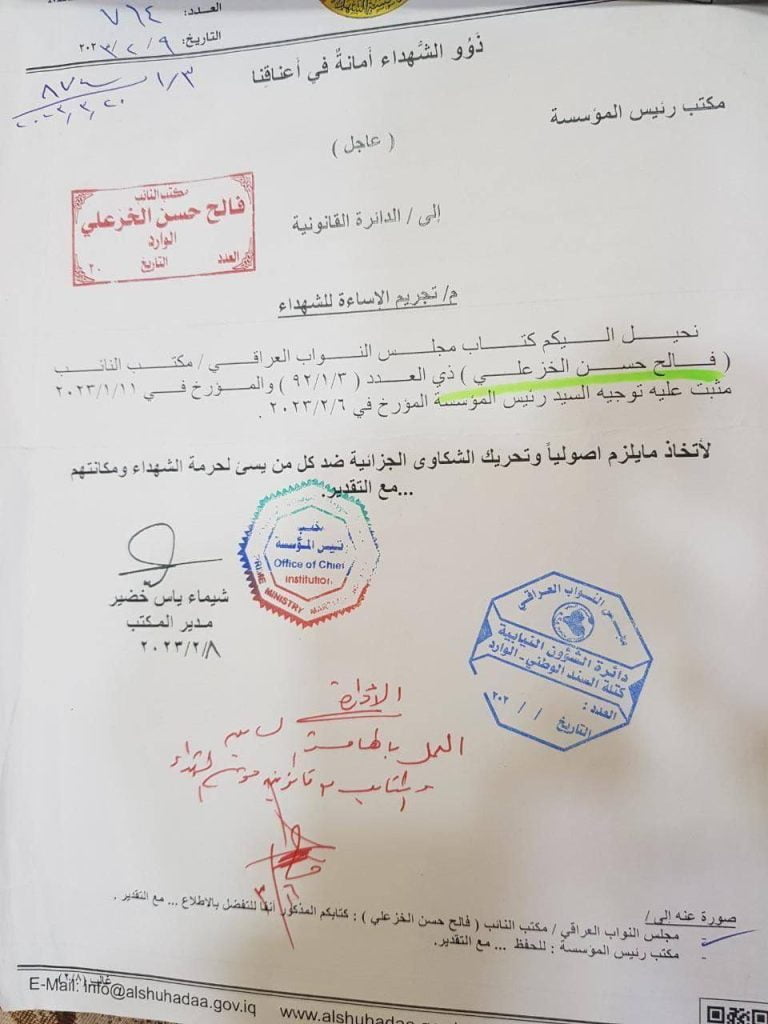 العدد: ٧٦٤
التاريخ: ٢٠٢٣/٢/٩
٨٧٤٠ ١/٣
٢٠٢٣,٣,٢٠
ذَوُو الشُّهداء أمانةٌ في أعناقِنا
مكتب رئيس المؤسسة
( عاجل )
مكتب النائب
فالح حسن الخزعلي
الوارد
العدد
التاريخ ٢٠
إلى / الدائرة القانونية
م/ تجريم الإساءة للشهداء
نحيل اليكم كتاب مجلس النواب العراقي / مكتب النائب
( فالح حسن الخزعلي ) ذي العدد ( ٩٢/١/٣ ) والمؤرخ في ٢٠٢٣/١/١١
مثبت عليه توجيه السيد رئيس المؤسسة المؤرخ في ٢٠٢٣/٢/٦ .
لأتخاذ مايلزم اصولياً وتحريك الشكاوى الجزائية ضد كل من يسئ لحرمة الشهداء ومكانتهم
...مع التقدير.
مكتب
رئيس المؤسسة
Office of Chief
institution
PRIME MINISTRY
شيماء ياس خضير
مدير المكتب
٢٠٢٣/٢/٨
مجلس النواب العراقي
دائرة الشؤون النيابية
كتلة السند الوطني - الوارد
العدد :
التاريخ / / ٢٠٢
الأدارة
٣/٦
صورة عنه إلى /
مجلس النواب العراقي / مكتب النائب ( فالح حسن الخزعلي ) : كتابكم المذكور أنفا للتفضل بالاطلاع ... مع التقدير .
- مكتب رئيس المؤسسة : للحفظ ... مع التقدير.
(٢/٨)
E-Mail: info@alshuhadaa.gov.iq
www.alshuhadaa.gov.iq